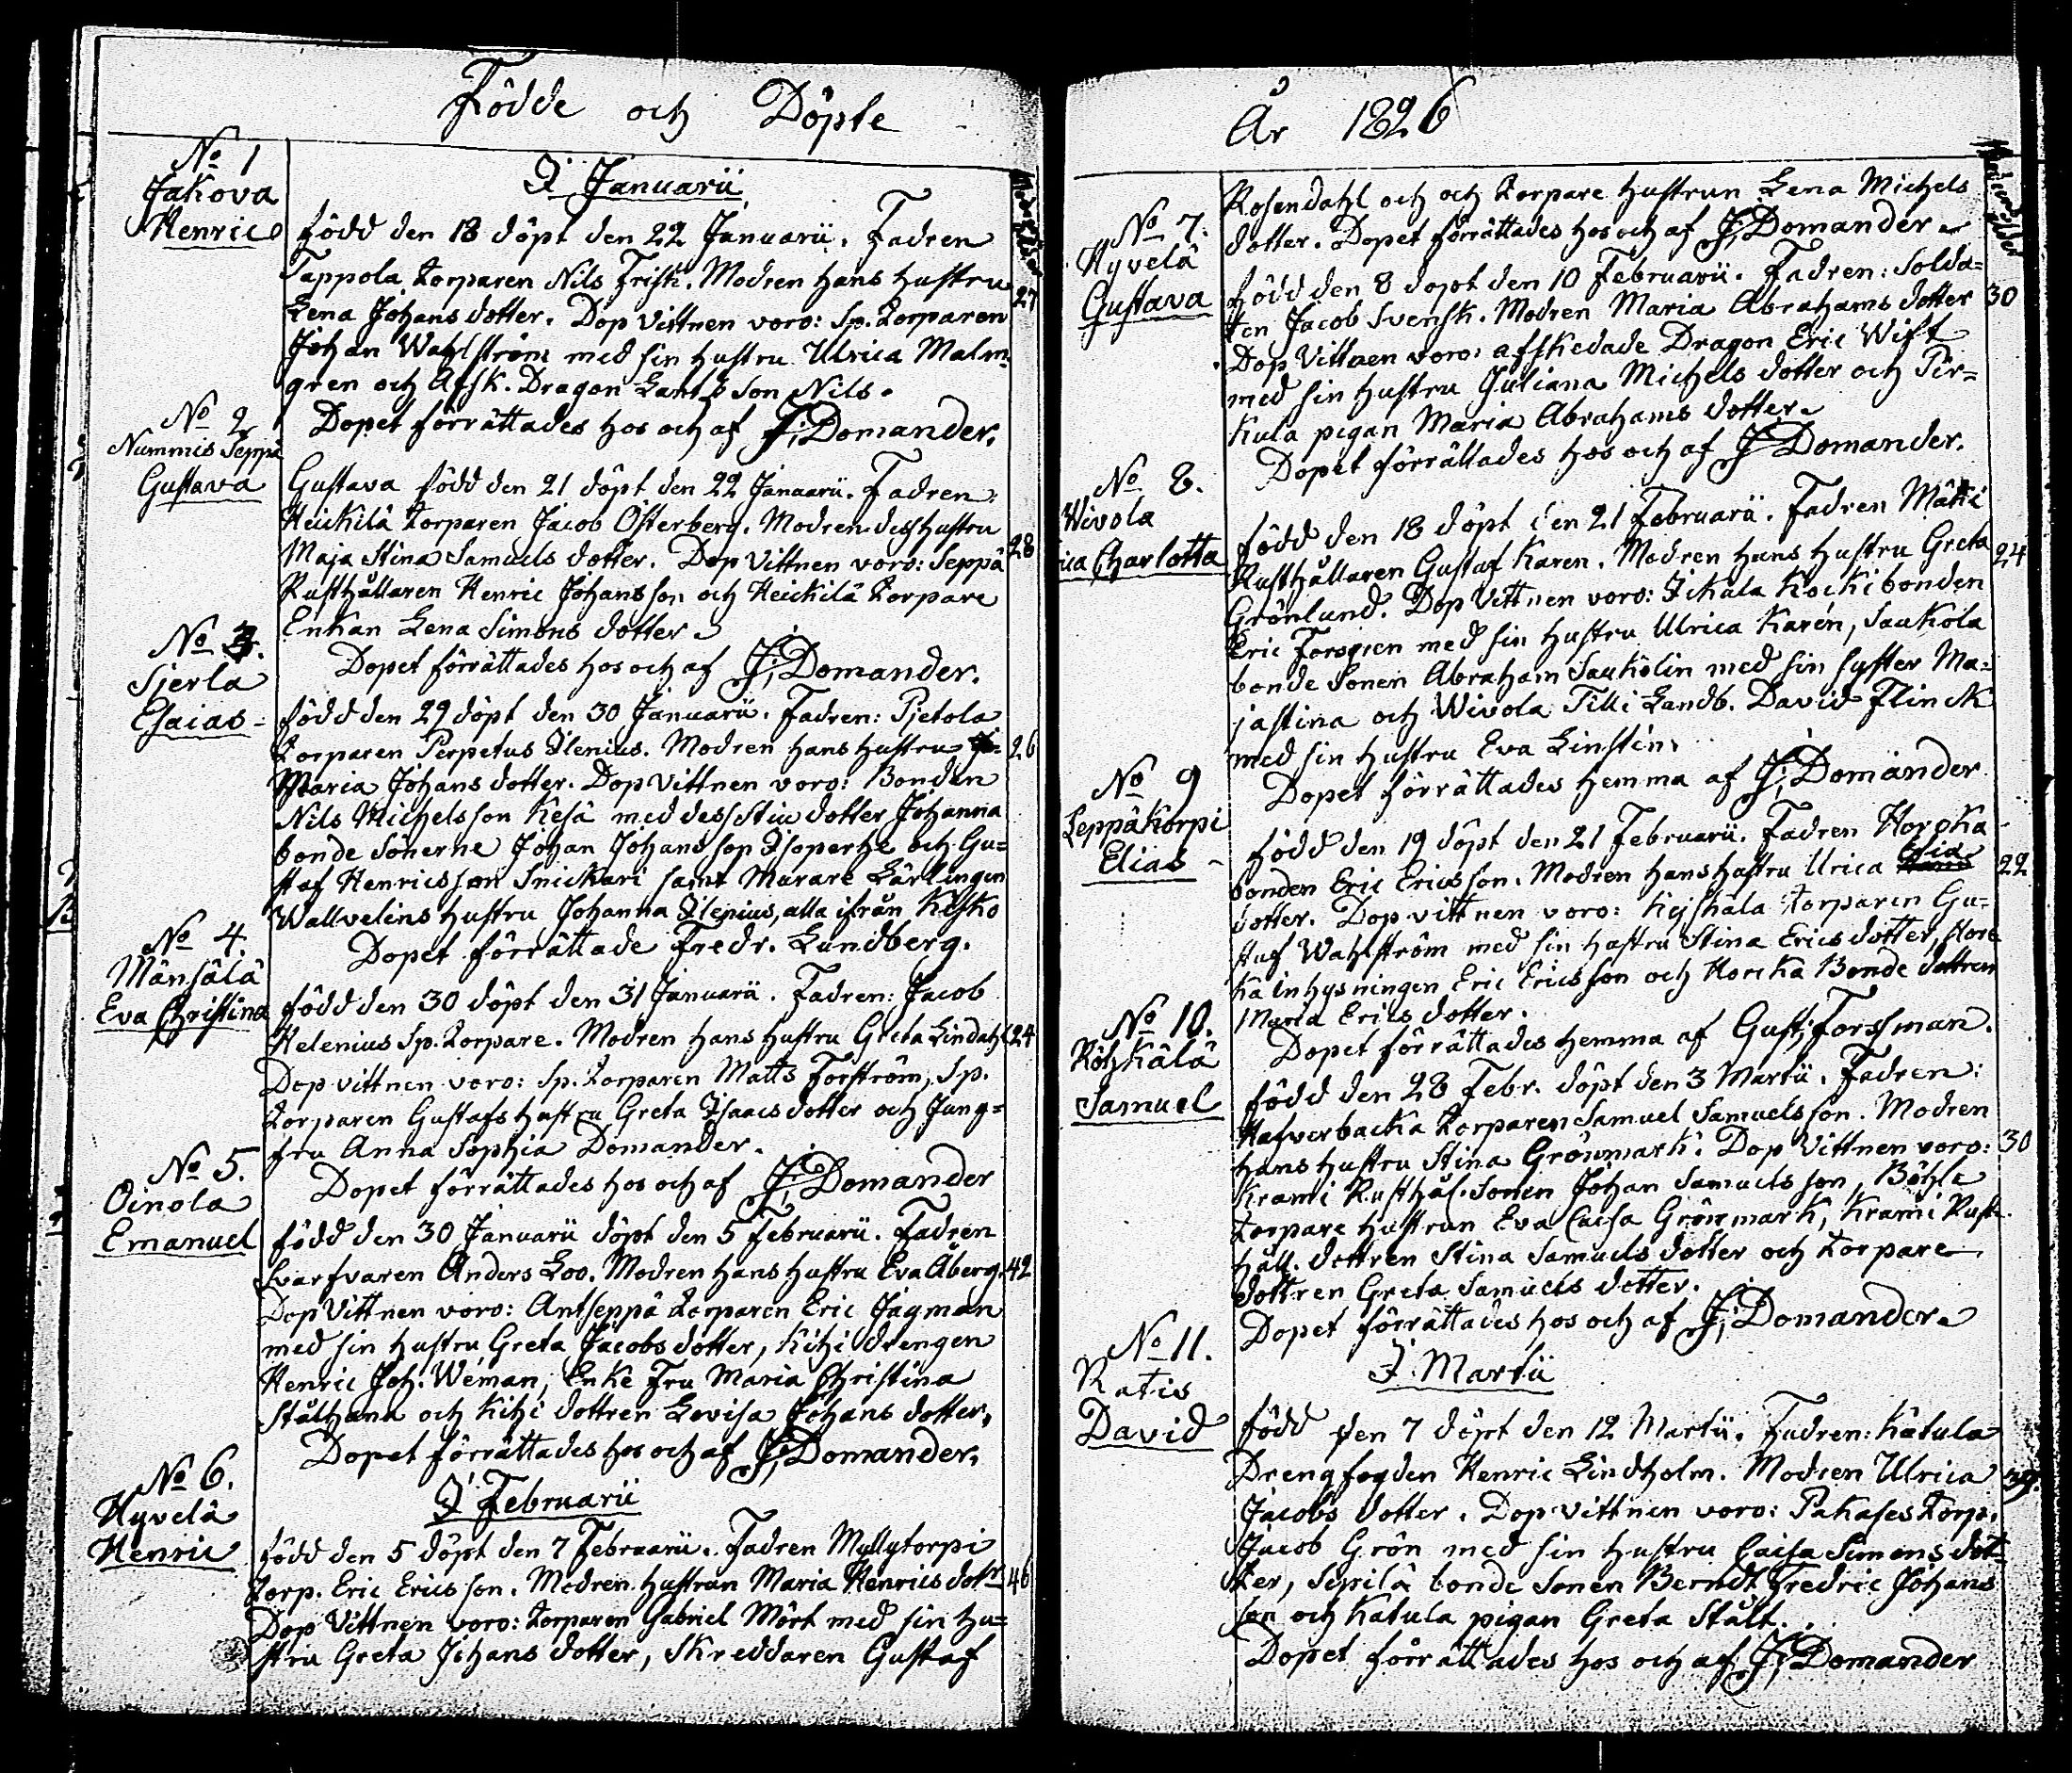 Födde och Döpte
No 1
Jakova
Henric
I Januarii
Moders ålder
född den 18 döpt den 22 Januarii. Fadren
Tappola Torparen Nils Frisk. Modren hans hustru 27
Lena Johans dotter. Dop Vittnen voro: Sp. Torparen
Johan Wahlström med sin hustru Ulrica Malm-
gren och Afsk. Dragon Lants Son Nils.
Dopet förrättades hos och af J; Domander.
No 2
Nummis Seppä
Gustava
Gustava född den 21 döpt den 22 Januarii. Fadren:
Heickilä Torparen Jacob Österberg. Modren dess hustru
Maja Stina Samuels dotter. Dop Vittnen voro: Seppä 28
Rusthållaren Henric Johansson och Heickilä Torpare
Enkan Lena Simons dotter.
Dopet förrättades hos och af J; Domander.
No 3.
Sjerla
Esaias
född den 29 döpt den 30 Januarii. Fadren: Pjetola
Torparen Perpetus Ilenius. Modren hans hustru 26
Maria Johans dotter. Dop Vittnen voro: Bonden
Nils Michelsson Kesä med dess Stiu dotter Johanna
bonde Sönerne Johan Johansson Isoperhe och Gu=
staf Henricsson Snickari samt Murare Lärlingen
Wallvelins hustru Johanna Ilenius, alla ifrån Kisko
Dopet förrättade Fredr. Lundberg.
No 4.
Mänsälä
Eva Christina
född den 30 döpt den 31 Januarii. Fadren: Jacob
Helenius Sp. Torpare. Modren hans hustru Greta Lindahl 24
Dop vittnen voro: Sp. Torparen Matts Forström, Sp.
Torparen Gustafs hustru Greta Isaacs dotter och Jung=
fru Anna Sophia Domander.
Dopet förrättades hos och af J; Domander
No 5.
Oinola
Emanuel
född den 30 Januarii döpt den 5 Februarii. Fadren
Svarfvaren Anders Loo. Modren hans hustru Eva Åberg. 42
Dop Vittnen voro: Antseppä Torparen Eric Jägman
med sin hustru Greta Jacobs dotter, Kihi drengen
Henric Joh. Wéman, Enke Fru Maria Christina
Stålhana och Kihi dottren Lovisa Johans dotter,
Dopet förrättades hos och af J; Domander.
No 6.
Hyvelä
Henric
I Februarii
född den 5 döpt den 7 Februarii. Fadren Myllytorpi
Torp. Eric Ericsson. Modren hustrun Maria Henrics dotr 46
Dop Vittnen voro: Torparen Gabriel Mört med sin hu=
stru Greta Johans dotter, Skreddaren Gustaf
År 1826
Moders ålder
Rosendahl och och Torpare hustrun Lena Michels
dotter. Dopet förrättades hos och af J; Domander
No 7.
Hyvelä
Gustava
född den 8 döpt den 10 Februarii. Fadren: Solda=
ten Jacob Svensk. Modren Maria Abrahams dotter 30
Dop Vittnen voro: afskedade Dragon Eric Wift
med sin hustru Juliana Michels dotter och Pir=
kula pigan Maria Abrahams dotter.
Dopet förrättades hos och af J Domander.
No 8.
Wivola
ica Charlotta
född den 18 döpt den 21 Februarii. Fadren Mätti
Rusthållaren Gustaf Karen. Modren hans hustru Greta 24
Grönlund. Dop Vittnen voro: Ikala Kocki bonden
Eric Forsgren med sin hustru Ulrica Karén, Saukola
bonde Sonen Abraham Saukolin med sin syster Ma=
jastina och Wivola Tilli Landb. David Flinck
med sin hustru Eva Linstén.
Dopet förrättades hemma af J; Domander
No 9
Leppäkorpi
Elias
född den 19 döpt den 21 Februarii. Fadren Horcka
bonden Eric Ericsson. Modren hans hustru Ulrica 22
dotter. Dop vittnen voro: Kejhälä Torparen Gu=
staf Wahlström med sin hustru Stina Erics dotter, Horc
ka inhysningen Eric Ericsson och Horcka Bonde dottren
Maria Erics dotter.
Dopet förrättades hemma af Gust; Forssman.
No 10.
Röhkälä
Samuel
född den 28 Febr. döpt den 3 Martii. Fadren:
Hafverbacka Torparen Samuel Samuelsson. Modren
hans hustru Stina Grönmark. Dop Vittnen voro: 30
Krami Rusthål. Sonen Johan Samuelsson, Böhle
Torpare hustrun Eva Caisa Grönmark, Krami Rust
håll. dottren Stina Samuels dotter och Torpare
dottren Greta Samuels dotter.
Dopet förrättades hos och af J; Domander.
No 11.
Ratis
David
I Martii
född den 7 döpt den 12 Martii. Fadren: Kätula
Drengfogden Henric Lindholm. Modren Ulrica 39.
Jacobs dotter. Dop vittnen voro: Pakases Torp.
Jacob Grön med sin hustru Caisa Simons dot=
ter, Sepilä bonde Sonen Berndt Fredric Johans
son och Kätula pigan Greta Stålt.
Dopet förrättades hos och af J; Domander